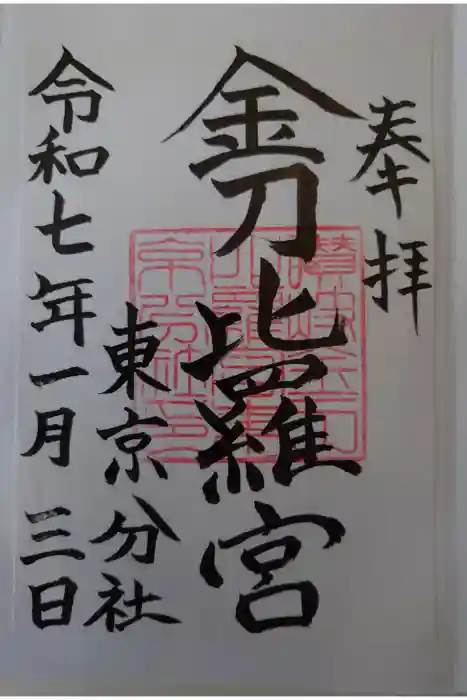 奉拝
金刀比羅宮
東京分社
令和七年一月三日